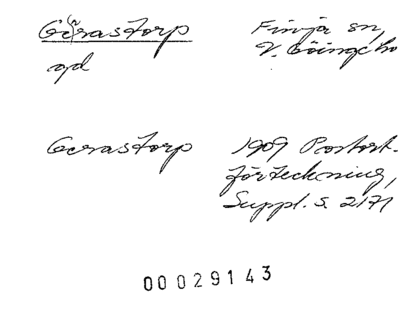 Görastorp
gd
Finja sn,
V. Göinge hd
Gorastorp
1909 Postort-
förteckning,
Suppl. s. 2171
00029143